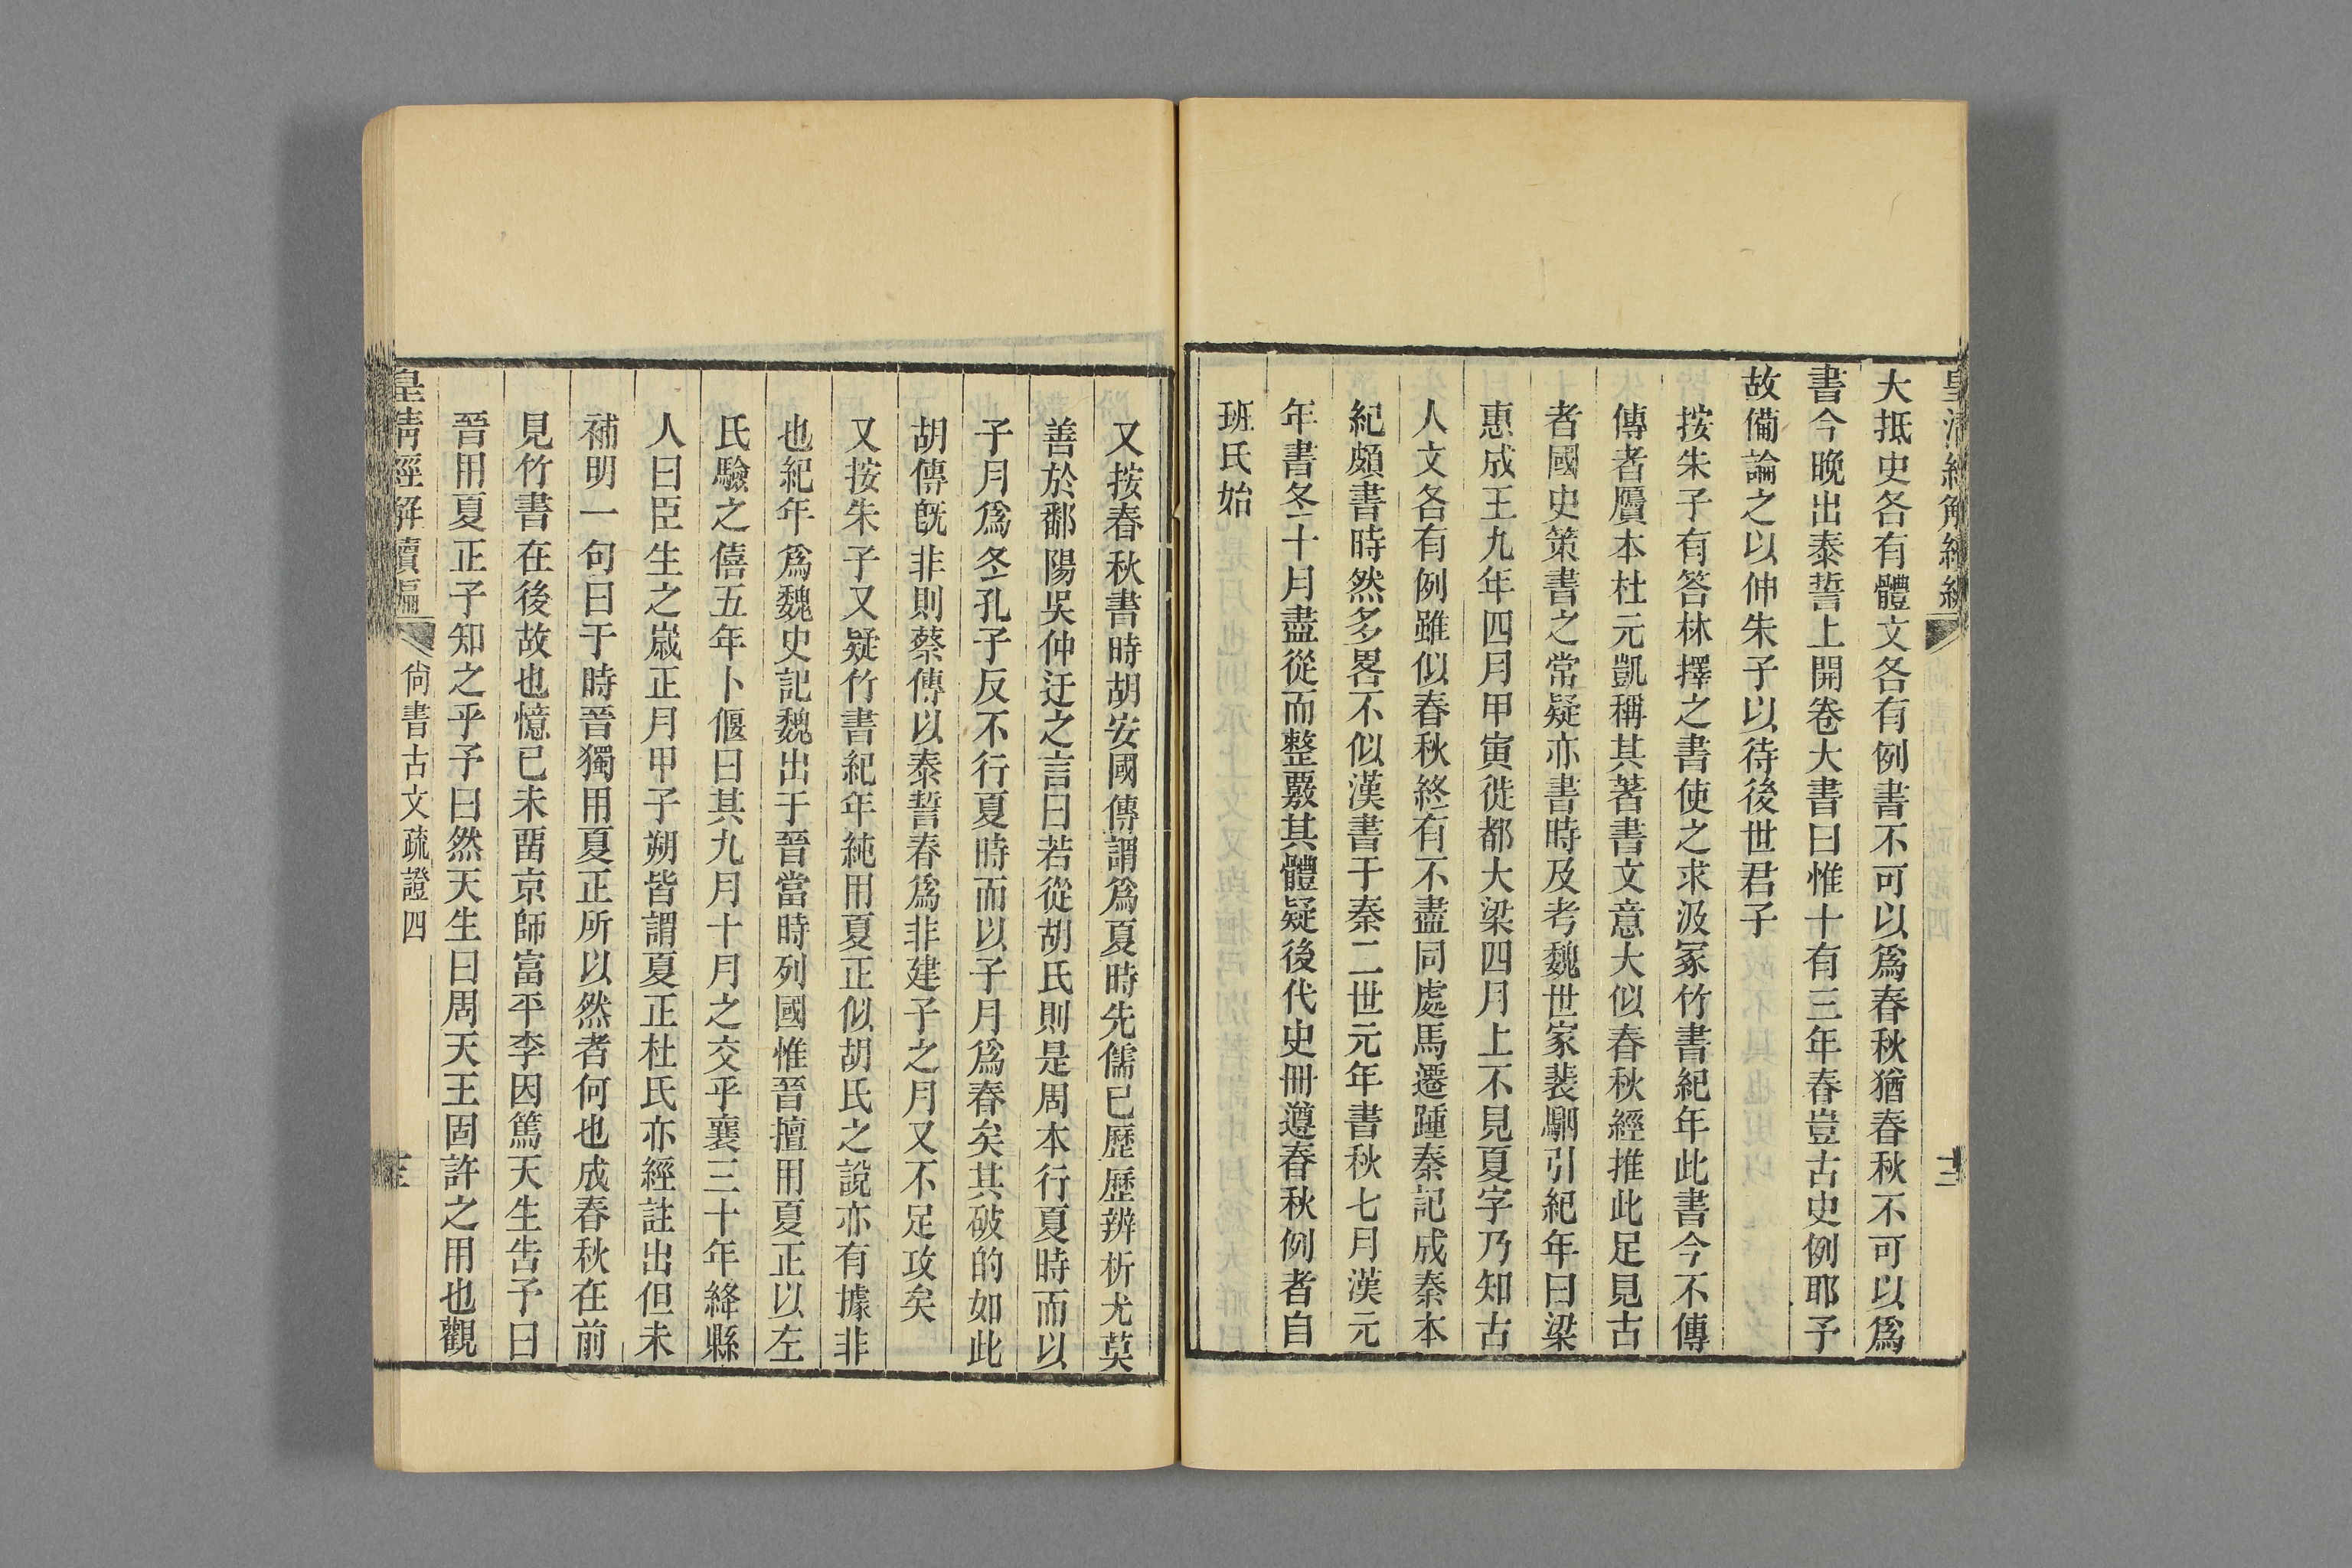 大抵史各有體文各有例書不可以爲春秋猶春秋不可以爲
書今晚出泰誓上開卷大書曰惟十有三年春豈古史例耶予
故備論之以伸朱子以待後世君子
按朱子有答林擇之書使之求汲冢竹書紀年此書今不傳
傳者贗本杜元凱稱其著書文意大似春秋經推此足見古
者國史策書之常疑亦書時及考魏世家裴駰引紀年曰梁
惠成王九年四月甲寅徙都大梁四月上不見夏字乃知古
人文各有例雖似春秋終有不盡同處馬遷踵秦記成秦本
紀頗書時然多畧不似漢書于秦二世元年書秋七月漢元
年書冬十月盡從而整覈其體疑後代史冊遵春秋例者自
班氏始
又按春秋書時胡安國傳謂爲夏時先儒已歷歷辨析尤莫
善於鄱陽吳仲迂之言曰若從胡氏則是周本行夏時而以
子月爲冬孔子反不行夏時而以子月爲春矣其破的如此
胡傳旣非則蔡傳以泰誓春爲非建子之月又不足攻矣
又按朱子又疑竹書紀年純用夏正似胡氏之說亦有據非
也紀年爲魏史記魏出于晉當時列國惟晉擅用夏正以左
氏驗之僖五年卜偃曰其九月十月之交乎襄三十年絳縣
人曰臣生之歲正月甲子朔皆謂夏正杜氏亦經註出但未
補明一句曰于時晉獨用夏正所以然者何也成春秋在前
見竹書在後故也憶己未畱京師富平李因篤天生告予曰
晉用夏正子知之乎予曰然天生曰周天王固許之用也觀
皇清經解續編
尙書古文疏證四